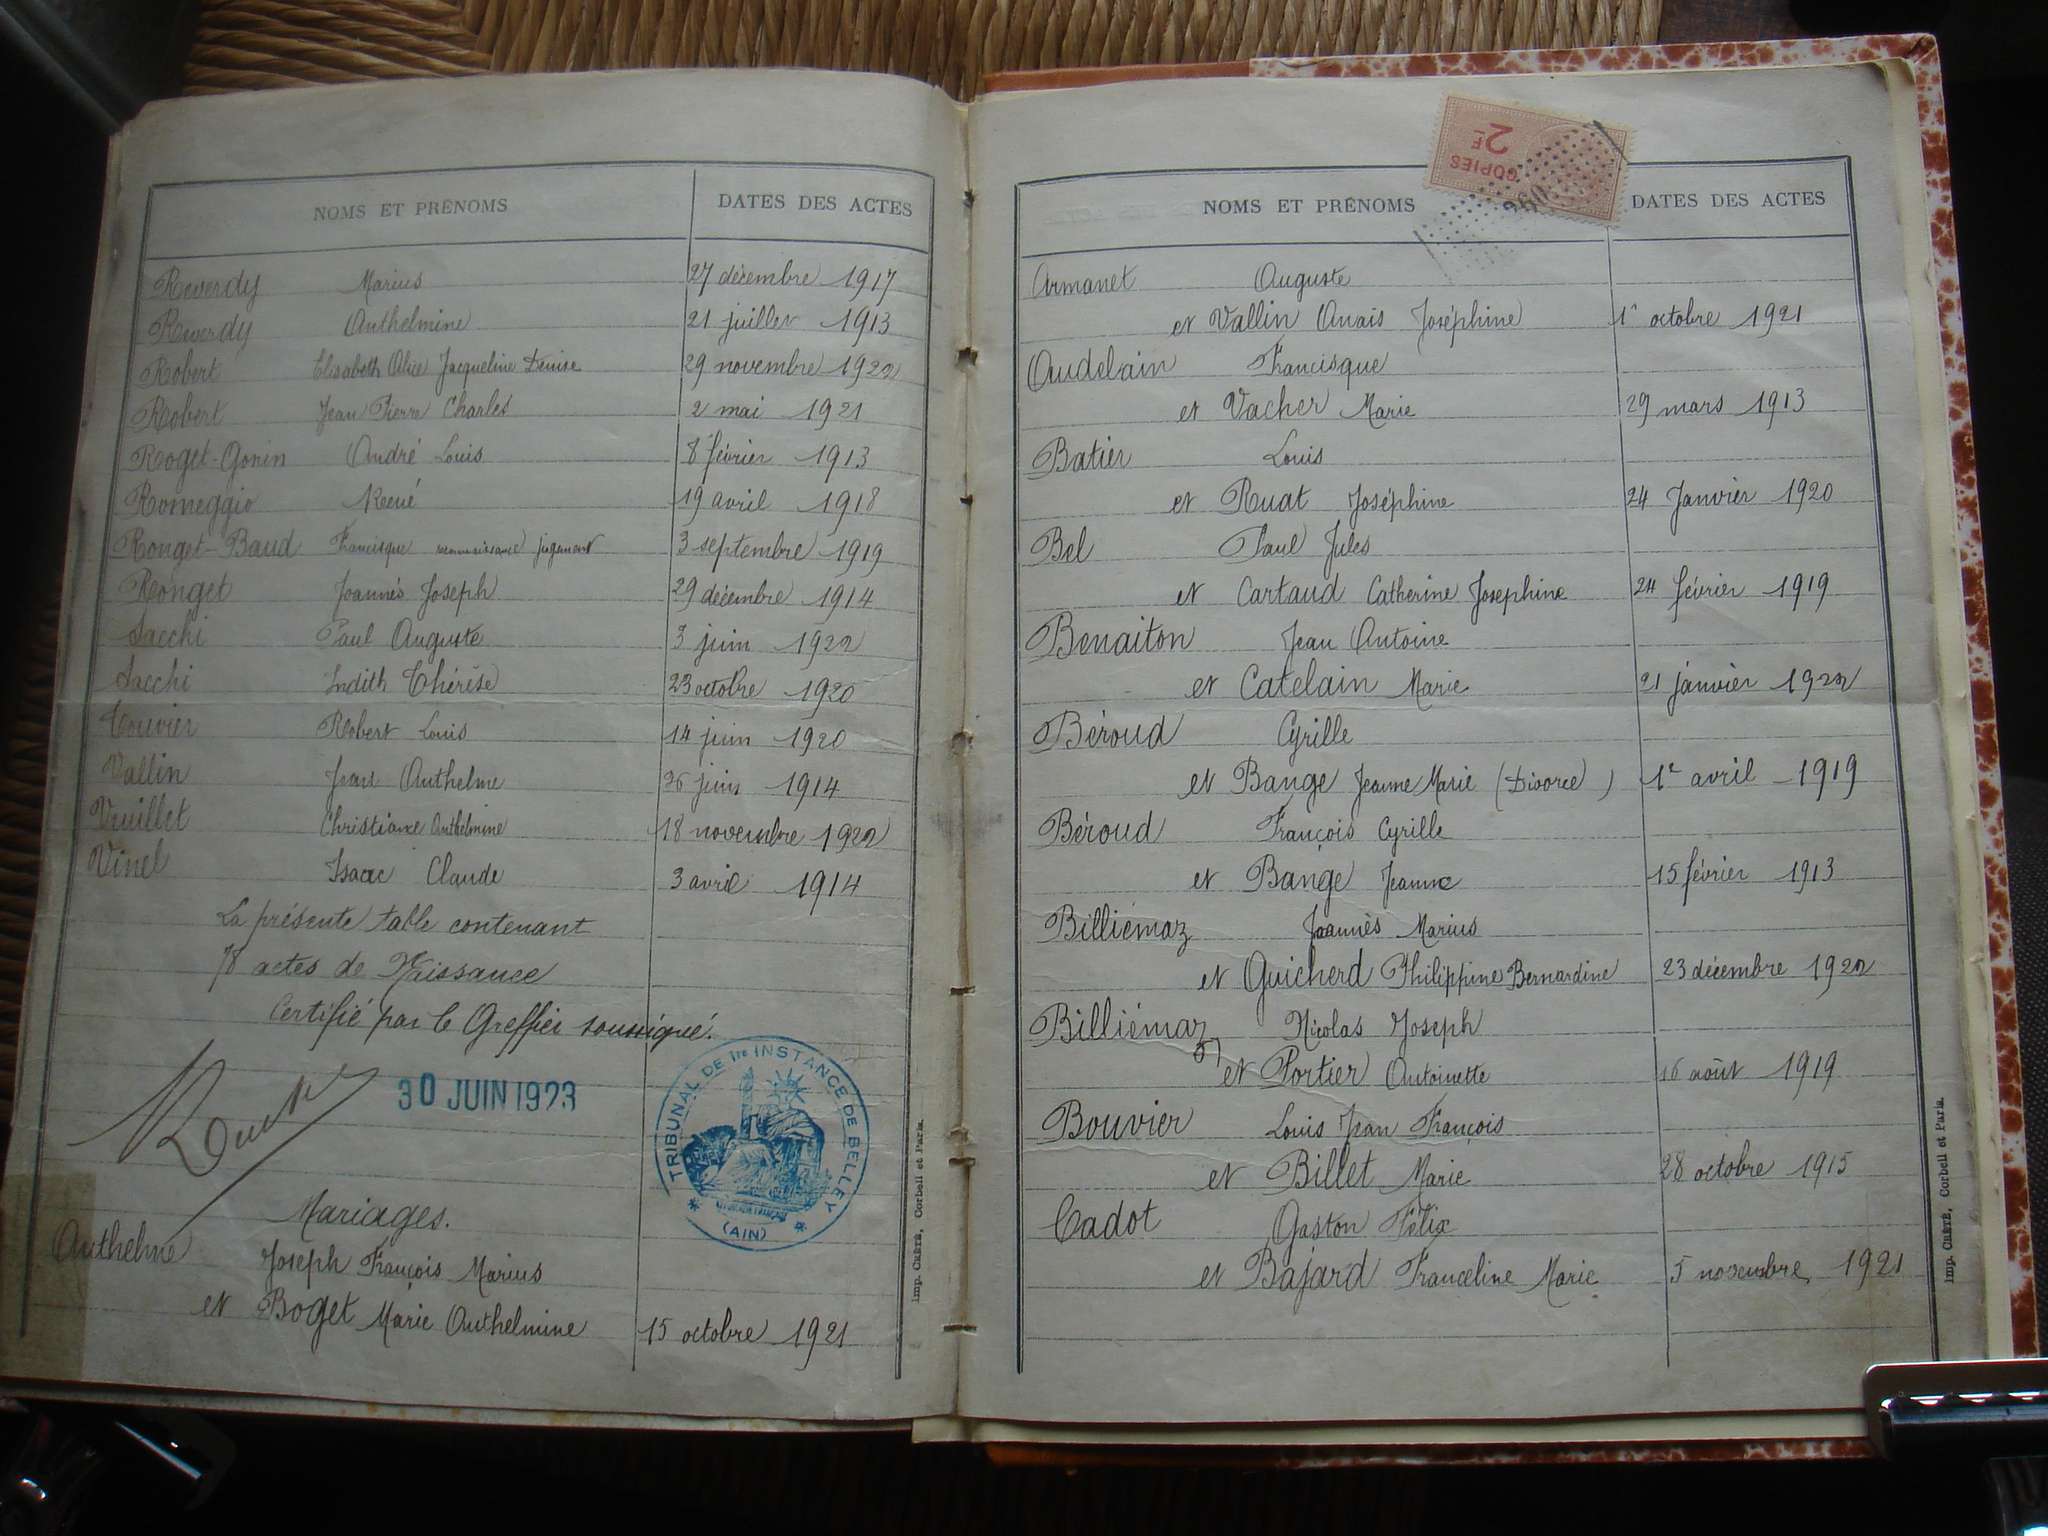 NOMS ET PRÉNOMS DATES DES ACTES
Reverdy Marius 27 décembre 1917
Reverdy Anthelmine 21 juillet 1913
Robert Elisabeth Alice Jacqueline Denise 29 novembre 1922
Robert Jean Pierre Charles 2 mai 1921
Roget-Gonin André Louis 8 février 1913
Romeggio René 19 avril 1918
Ronget-Baud Francisque reconnaissance jugement 3 septembre 1919
Ronget Joannès Joseph 29 décembre 1914
Sacchi Paul Auguste 3 juin 1922
Sacchi Judith Thérèse 23 octobre 1920
Touvier Robert Louis 14 juin 1920
Vallin Jean Anthelme 26 juin 1914
Vuillet Christiane Anthelmine 18 novembre 1922
Vinel Isaac Claude 3 avril 1914
La présente table contenant
78 actes de Naissance
Certifié par le Greffier soussigné.
30 JUIN 1923
TRIBUNAL DE 1re INSTANCE DE BELLEY
(AIN)
Mariages.
Anthelme Joseph François Marius
et Boget Marie Anthelmine 15 octobre 1921
Imp. CRÉTÉ, Corbeil et Paris.
COPIES
2F
260
NOMS ET PRÉNOMS DATES DES ACTES
Armanet Auguste
et Vallin Anais Joséphine 1r octobre 1921
Audelain Francisque
et Vacher Marie 29 mars 1913
Batier Louis
et Ruat Joséphine 24 Janvier 1920
Bel Paul Jules
et Cartaud Catherine Josephine 24 février 1919
Benaiton Jean Antoine
et Catelain Marie 21 janvier 1922
Béroud Cyrille
et Bange Jeanne Marie (Divorce) 1r avril 1919
Béroud François Cyrille
et Bange Jeanne 15 février 1913
Billiémaz Joannès Marius
et Guicherd Philippine Bernardine 23 décembre 1922
Billiémaz Nicolas Joseph
et Portier Antoinette 16 août 1919
Bouvier Louis Jean François
et Billet Marie 28 octobre 1915
Cadot Gaston Félix
et Bajard Franceline Marie 5 novembre 1921
Imp. CRÉTÉ, Corbeil et Paris.